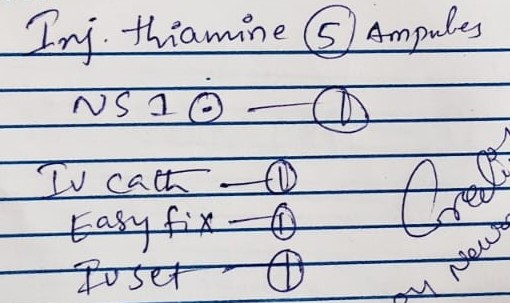 Inj. thiamine ⑤ Ampules
NS 1 ⊙ — ①
IV cath — ①
Easy fix — ①
IV set - ①